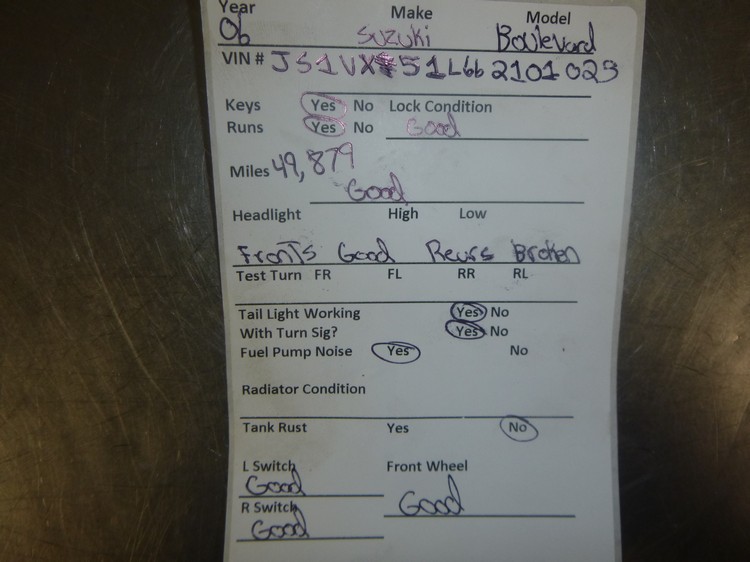 Year Make Model
06 Suzuki Boulevard
VIN # JS1VX51L662101023
Keys Yes No Lock Condition
Runs Yes No Good
Miles 49,879
Good
Headlight High Low
Fronts Good Rears Broken
Test Turn FR FL RR RL
Tail Light Working Yes No
With Turn Sig? Yes No
Fuel Pump Noise Yes No
Radiator Condition
Tank Rust Yes No
L Switch Front Wheel
Good Good
R Switch
Good